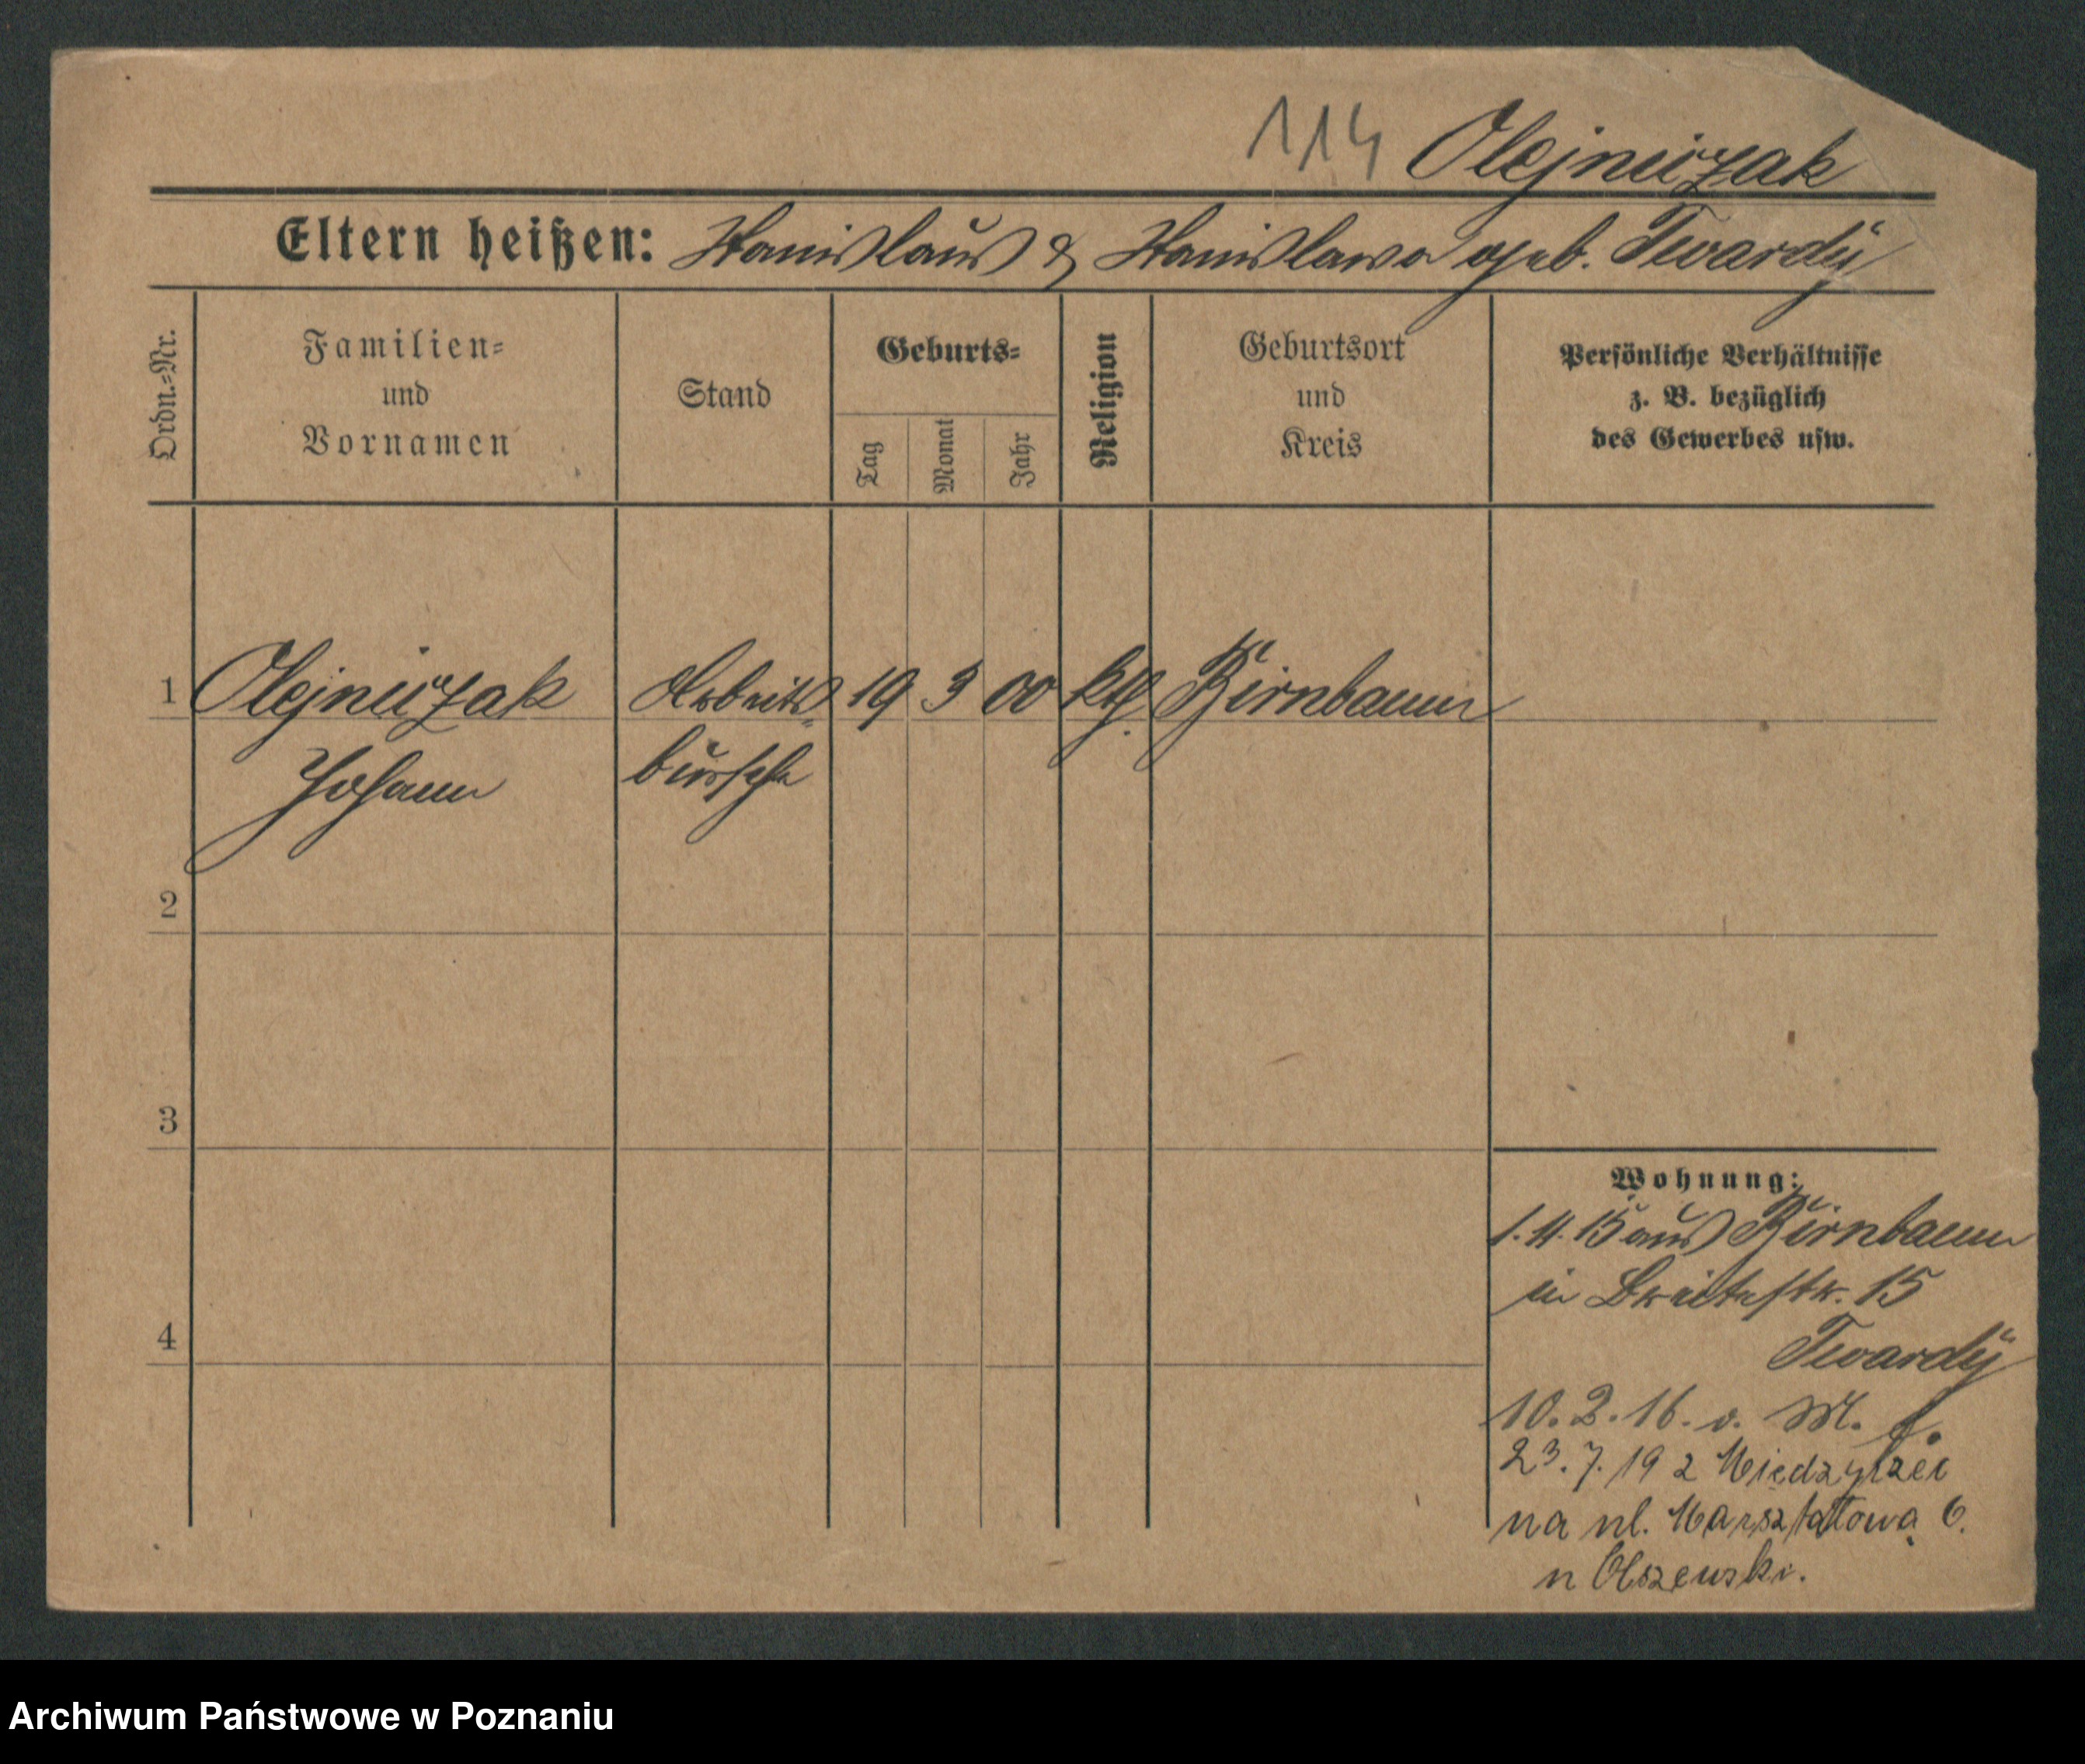 114 Olejniczak
Eltern heißen: Stanislaus & Stanislawa geb. Twardÿ
Ordn.=Nr.
Familien=
und
Vornamen
Stand
Geburts=
Tag
Monat
Jahr
Religion
Geburtsort
und
Kreis
Persönliche Verhältnisse
z. B. bezüglich
des Gewerbes usw.
1 Olejniczak Arbeits= 19 3 00 kth. Birnbaum
Johann bursche
2
3
4
Wohnung:
1.11.15 aus Birnbaum
in Breitestr. 15
Twardÿ
10.2.16. v. M.
23.7.19 z Międzyrzec
na ul. Marsztatową 6.
u Olszewski.
Archiwum Państwowe w Poznaniu